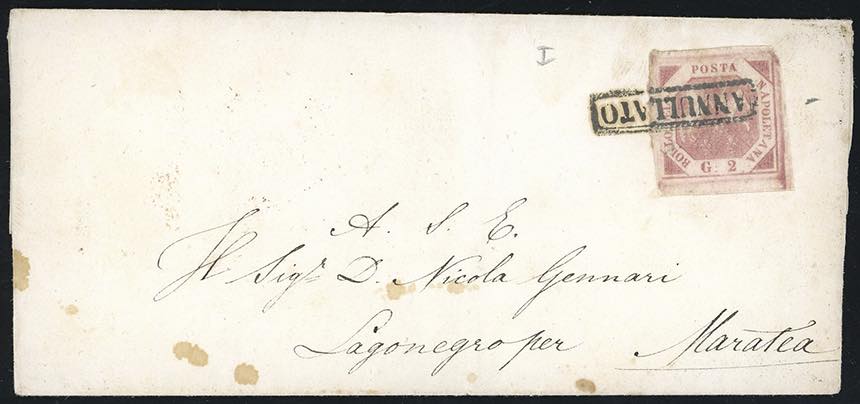 I
POSTA
NAPOLETANA
BOLLO
G. 2
ANNULLATO
A. S. E.
Il Sigr. D. Nicola Gennari
Lagonegro per Maratea